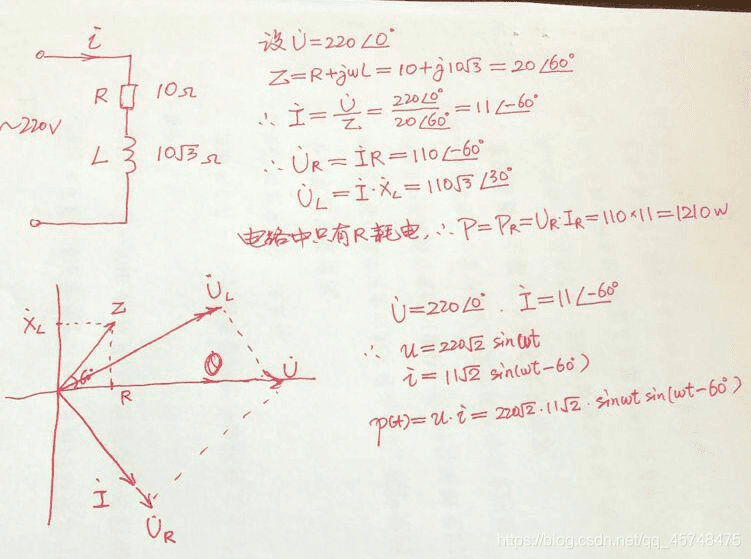 i̇
R 10Ω
~220V
L 10√3 Ω
设 U̇=220∠0°
Z=R+jwL=10+j10√3=20∠60°
∴ İ=U̇/Z=220∠0°/20∠60°=11∠-60°
∴ U̇R=İR=110∠-60°
U̇L=İ·ẊL=110√3∠30°
电路中只有R耗电,∴P=PR=UR·IR=110×11=1210w
U̇L
Z
ẊL
60°
U̇
R
İ
U̇R
U̇=220∠0° . İ=11∠-60°
∴ u=220√2 sinωt
i=11√2 sin(ωt-60°)
p(t)=u·i=220√2·11√2·sinωt sin(ωt-60°)
https://blog.csdn.net/qq_45748475